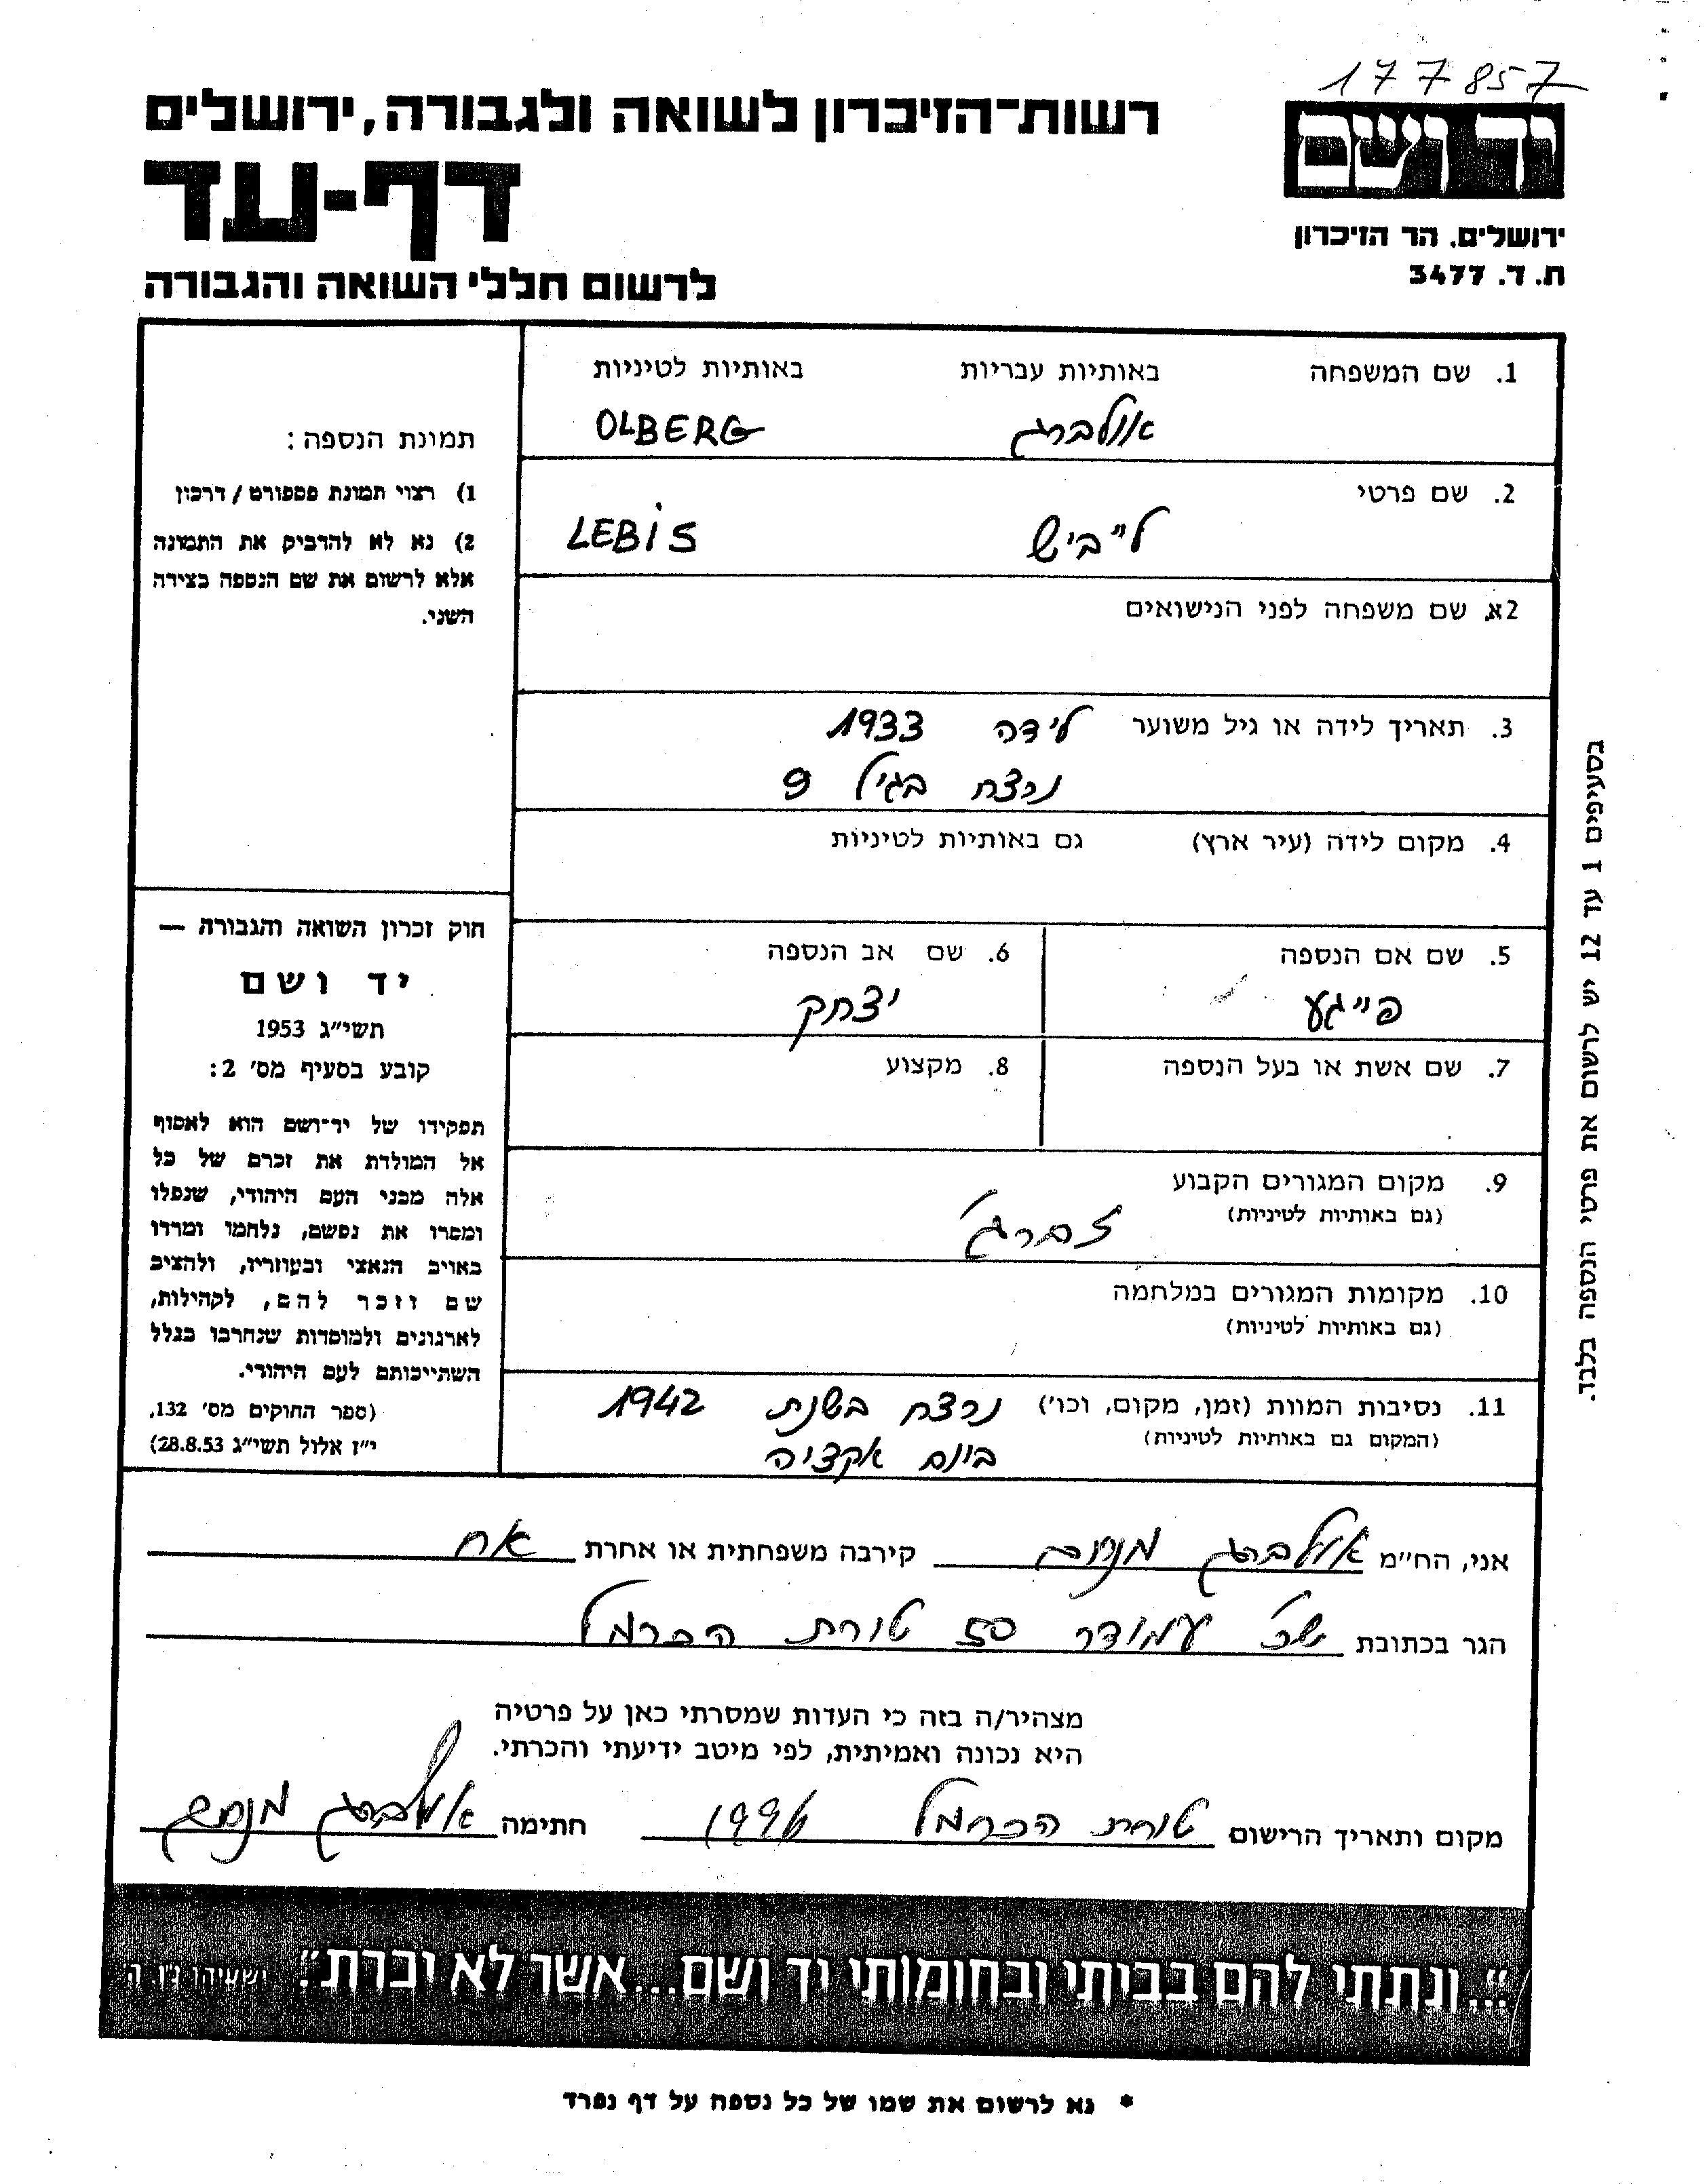 177857
יד ושם
ירושלים. הר הזיכרון
ת. ד. 3477
רשות־הזיכרון לשואה ולגבורה, ירושלים
דף-עד
לרשום חללי השואה והגבורה
1. שם המשפחה באותיות עבריות באותיות לטיניות
אולברג OLBERG
2. שם פרטי
לייביש LEBiS
2א. שם משפחה לפני הנישואים
3. תאריך לידה או גיל משוער לידה 1933
נרצח בגיל 9
4. מקום לידה (עיר ארץ) גם באותיות לטיניות
5. שם אם הנספה 6. שם אב הנספה
פייגע יצחק
7. שם אשת או בעל הנספה 8. מקצוע
9. מקום המגורים הקבוע
(גם באותיות לטיניות)
זברג'
10. מקומות המגורים במלחמה
(גם באותיות לטיניות)
11. נסיבות המוות (זמן, מקום, וכו') נרצח בשנת 1942
(המקום גם באותיות לטיניות)
ביום אקציה
תמונת הנספה:
1) רצוי תמונת פספורט / דרכון
2) נא לא להדביק את התמונה
אלא לרשום את שם הנספה בצידה
השני.
חוק זכרון השואה והגבורה —
יד ושם
תשי״ג 1953
קובע בסעיף מס׳ 2:
תפקידו של יד־ושם הוא לאסוף
אל המולדת את זכרם של כל
אלה מבני העם היהודי, שנפלו
ומסרו את נפשם, נלחמו ומרדו
באויב הנאצי ובעוזריו, ולהציב
שם וזכר להם, לקהילות,
לארגונים ולמוסדות שנחרבו בגלל
השתייכותם לעם היהודי.
(ספר החוקים מס׳ 132,
י״ז אלול תשי״ג 28.8.53)
בסעיפים 1 עד 12 יש לרשום את פרטי הנספה בלבד.
אני, הח״מ אולברג מנחם קירבה משפחתית או אחרת אח
הגר בכתובת שכ' עמידר טירת הכרמל
מצהיר/ה בזה כי העדות שמסרתי כאן על פרטיה
היא נכונה ואמיתית, לפי מיטב ידיעתי והכרתי.
מקום ותאריך הרישום טירת הכרמל חתימה אולברג מנחם
״...ונתתי להם בביתי ובחומותי יד ושם...אשר לא יכרת״. ישעיהו נ״ו ה
* נא לרשום את שמו של כל נספה על דף נפרד